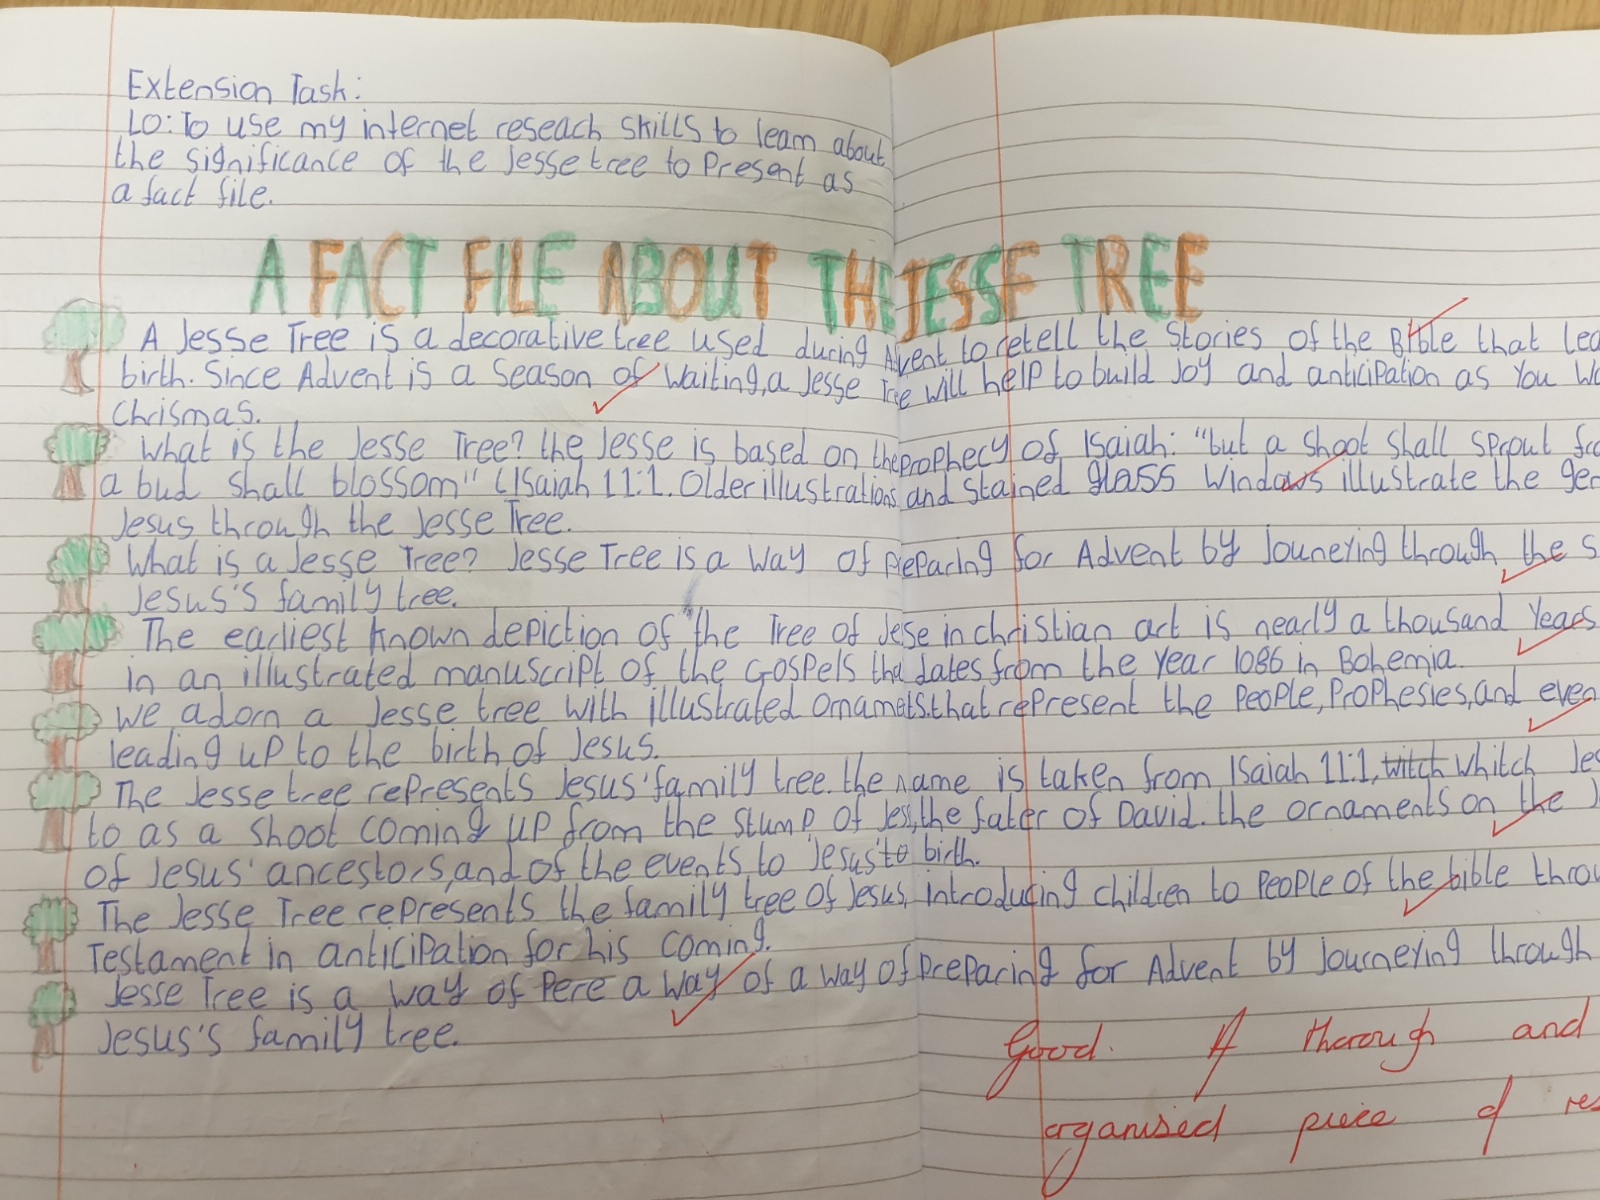 Extension Task:
LO: To use my internet reseach skills to learn about
the significance of the Jesse tree to Present as
a fact file.
A FACT FILE ABOUT THE JESSE TREE
A Jesse Tree is a decorative tree used during Advent to retell the Stories of the Bible that
birth. Since Advent is a Season of waiting, a Jesse Tree will help to build Joy and anticipation as You
Chrismas.
What is the Jesse Tree? the Jesse is based on the prophecy of Isaiah: "but a shoot shall sprout
a bud shall blossom" (Isaiah 11:1. Older illustrations and stained glass windows illustrate the
Jesus through the Jesse Tree.
What is a Jesse Tree? Jesse Tree is a way of preparing for Advent by Jouneying through the
Jesus's family tree.
The earliest known depiction of the Tree of Jese in christian art is nearly a thousand Years
in an illustrated manuscript of the Gospels tha dates from the year 1086 in Bohemia.
we adorn a Jesse tree with illustrated ornamets.that represent the People, Prophesies, and
leading up to the birth of Jesus.
The Jesse tree represents Jesus' family tree. the name is taken from Isaiah 11:1, witch whitch
to as a shoot coming up from the stump of Jess, the fater of David. the ornaments on the
of Jesus' ancestors, and of the events to Jesus' to birth.
The Jesse Tree represents the family tree of Jesus, introducing children to People of the bible
Testament in anticipation for his coming.
Jesse Tree is a way of Pere a way of a way of preparing for Advent by Journeying through
Jesus's family tree.
Good. A thorough and
organised piece of